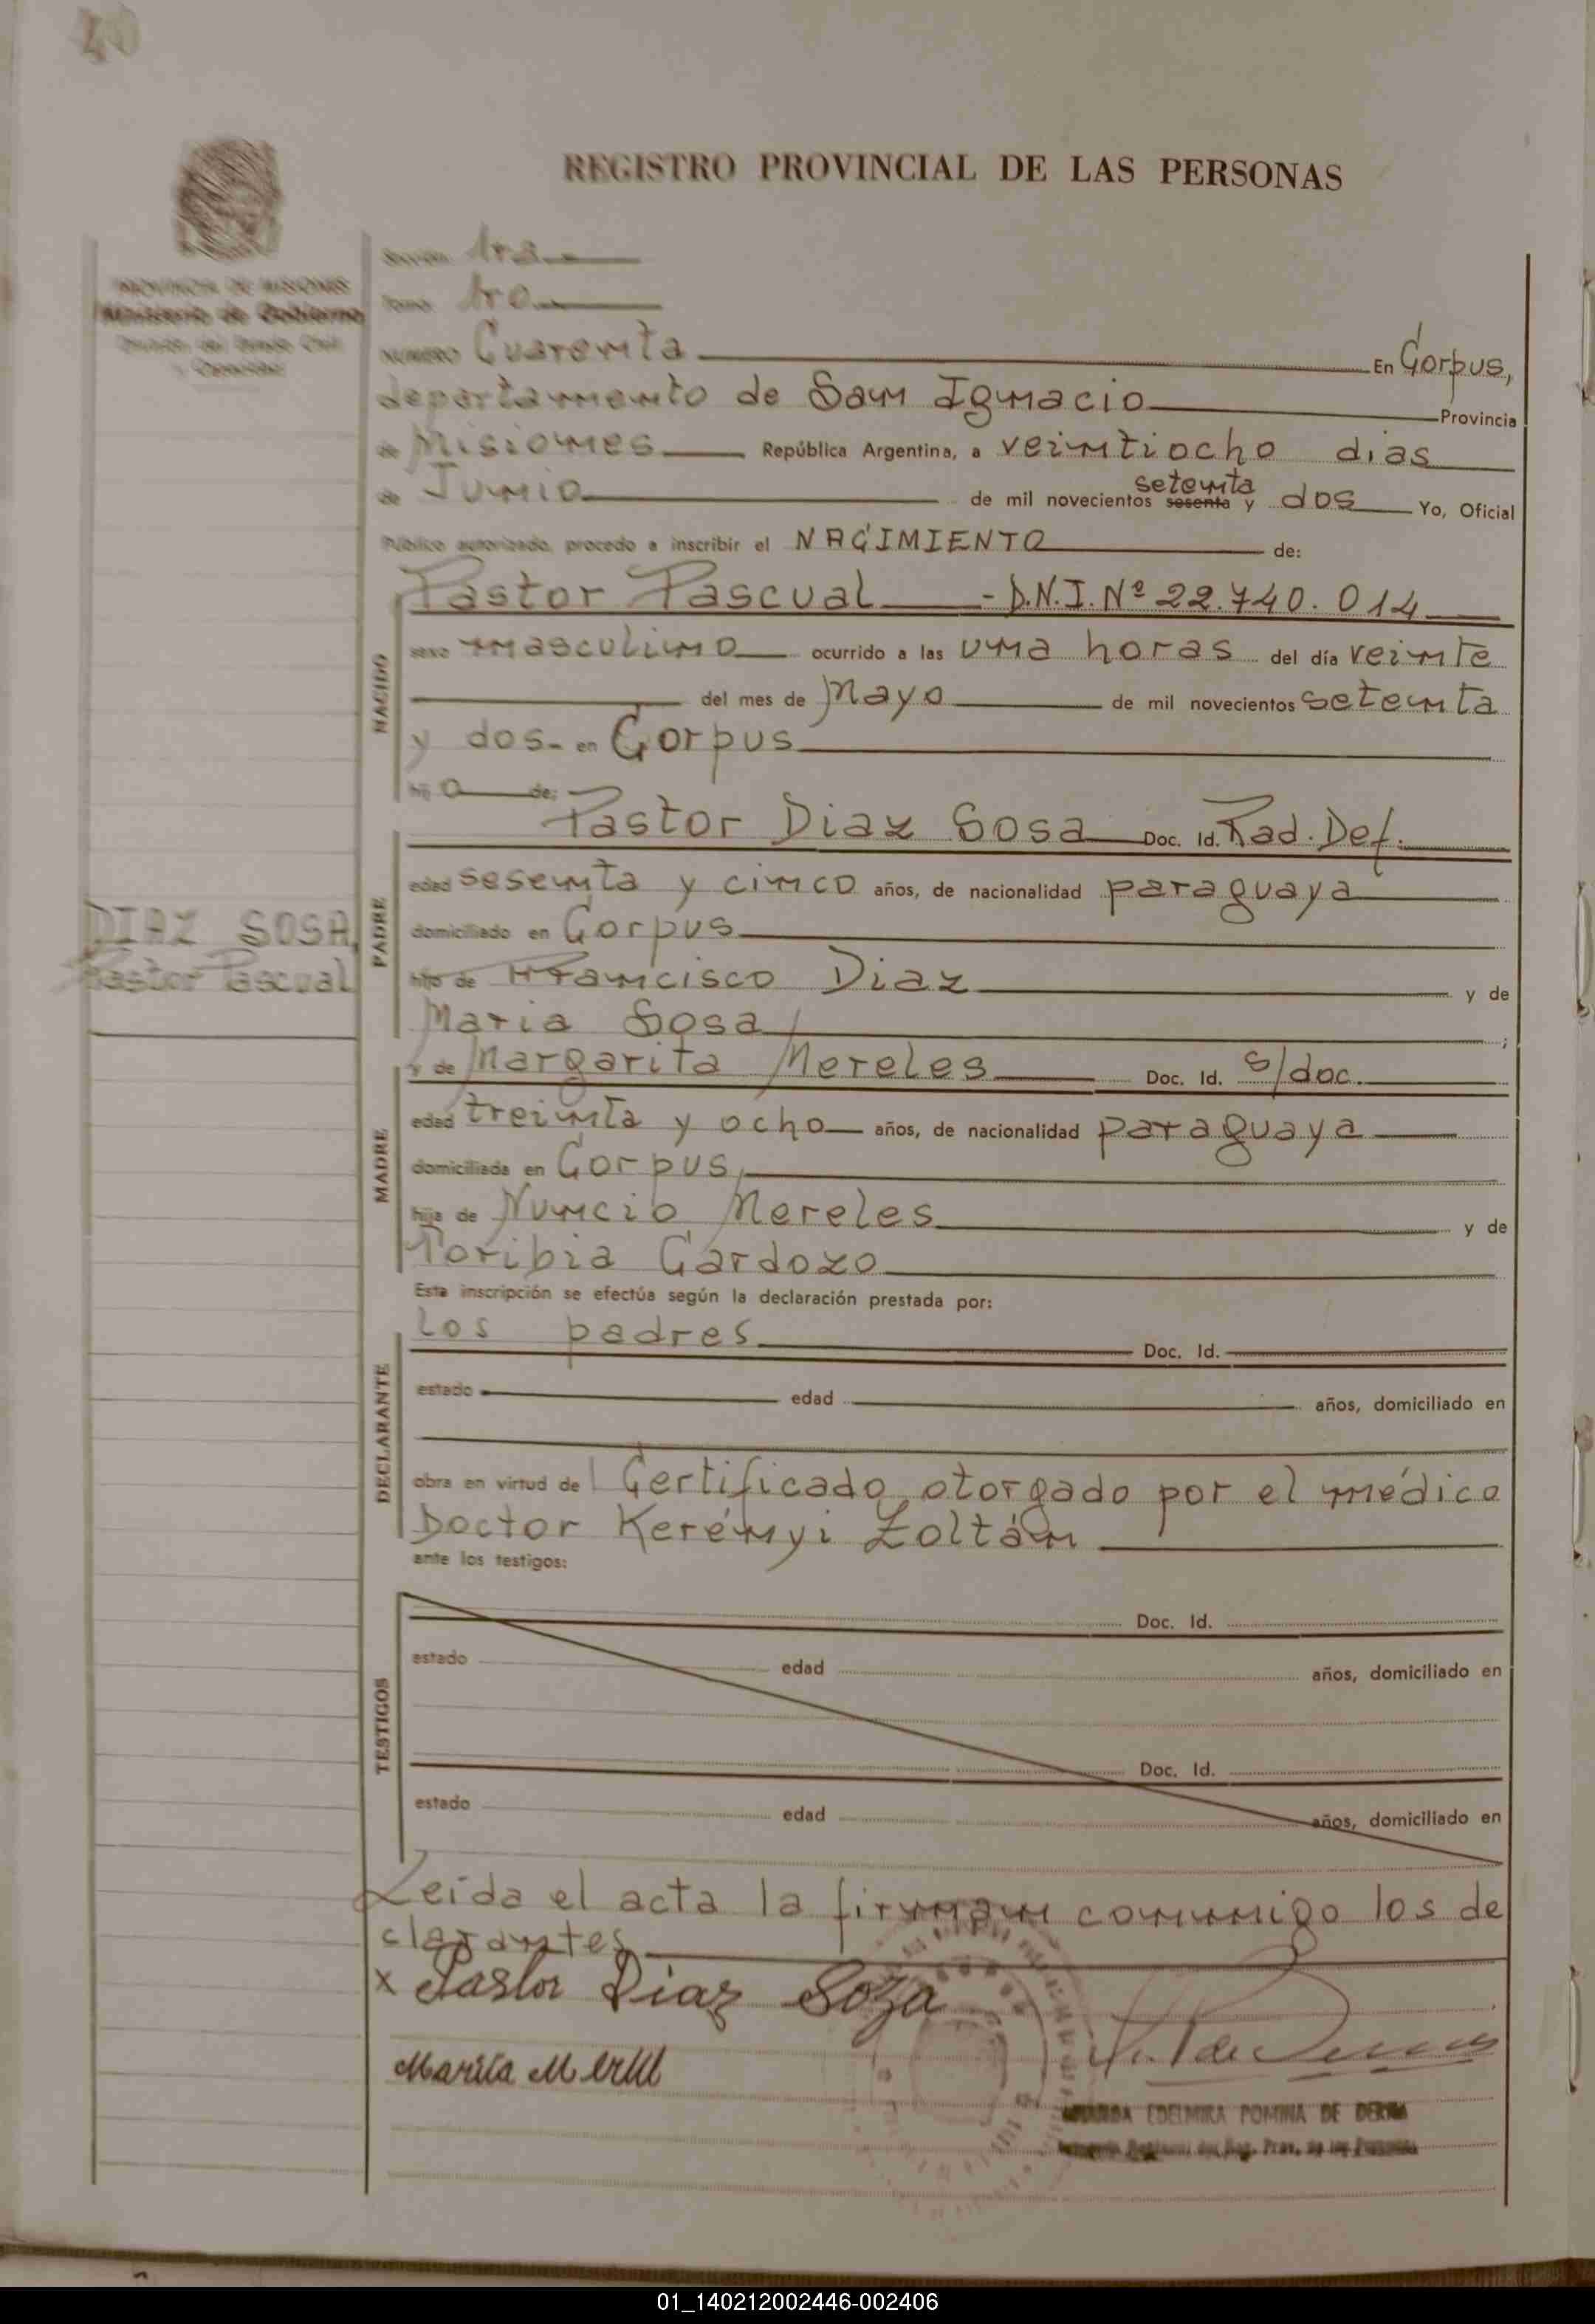 40
REGISTRO PROVINCIAL DE LAS PERSONAS
PROVINCIA DE MISIONES
Ministerio de Gobierno
Sección 1ra
Tomo 1ro
NUMERO Cuarenta En Corpus,
departamento de San Ignacio Provincia
de Misiones República Argentina, a veintiocho dias
de Junio de mil novecientos sesenta setenta y dos Yo, Oficial
Público autorizado, procedo a inscribir el NACIMIENTO de:
Pastor Pascual - D.N.I. Nº 22.740.014
NACIDO
sexo masculino ocurrido a las una horas del día veinte
del mes de Mayo de mil novecientos setenta
y dos- en Corpus
hij o de:
Pastor Diaz Sosa Doc. Id. Rad. Def.
PADRE
edad sesenta y cinco años, de nacionalidad paraguaya
domiciliado en Corpus
hijo de Francisco Diaz y de
Maria Sosa ;
DIAZ SOSA,
Pastor Pascual
y de Margarita Mereles Doc. Id. s/doc.
MADRE
edad treinta y ocho años, de nacionalidad paraguaya
domiciliada en Corpus,
hija de Nuncio Mereles y de
Toribia Cardozo
Esta inscripción se efectúa según la declaración prestada por:
los padres Doc. Id.
DECLARANTE
estado edad años, domiciliado en
obra en virtud de l Certificado otorgado por el médico
Doctor Kerényi Zoltán
ante los testigos:
TESTIGOS
Doc. Id.
estado edad años, domiciliado en
Doc. Id.
estado edad años, domiciliado en
Leída el acta la firman conmigo los de
clarantes
x Pastor Diaz Soza
EDELMIRA POMINA DE
01_140212002446-002406